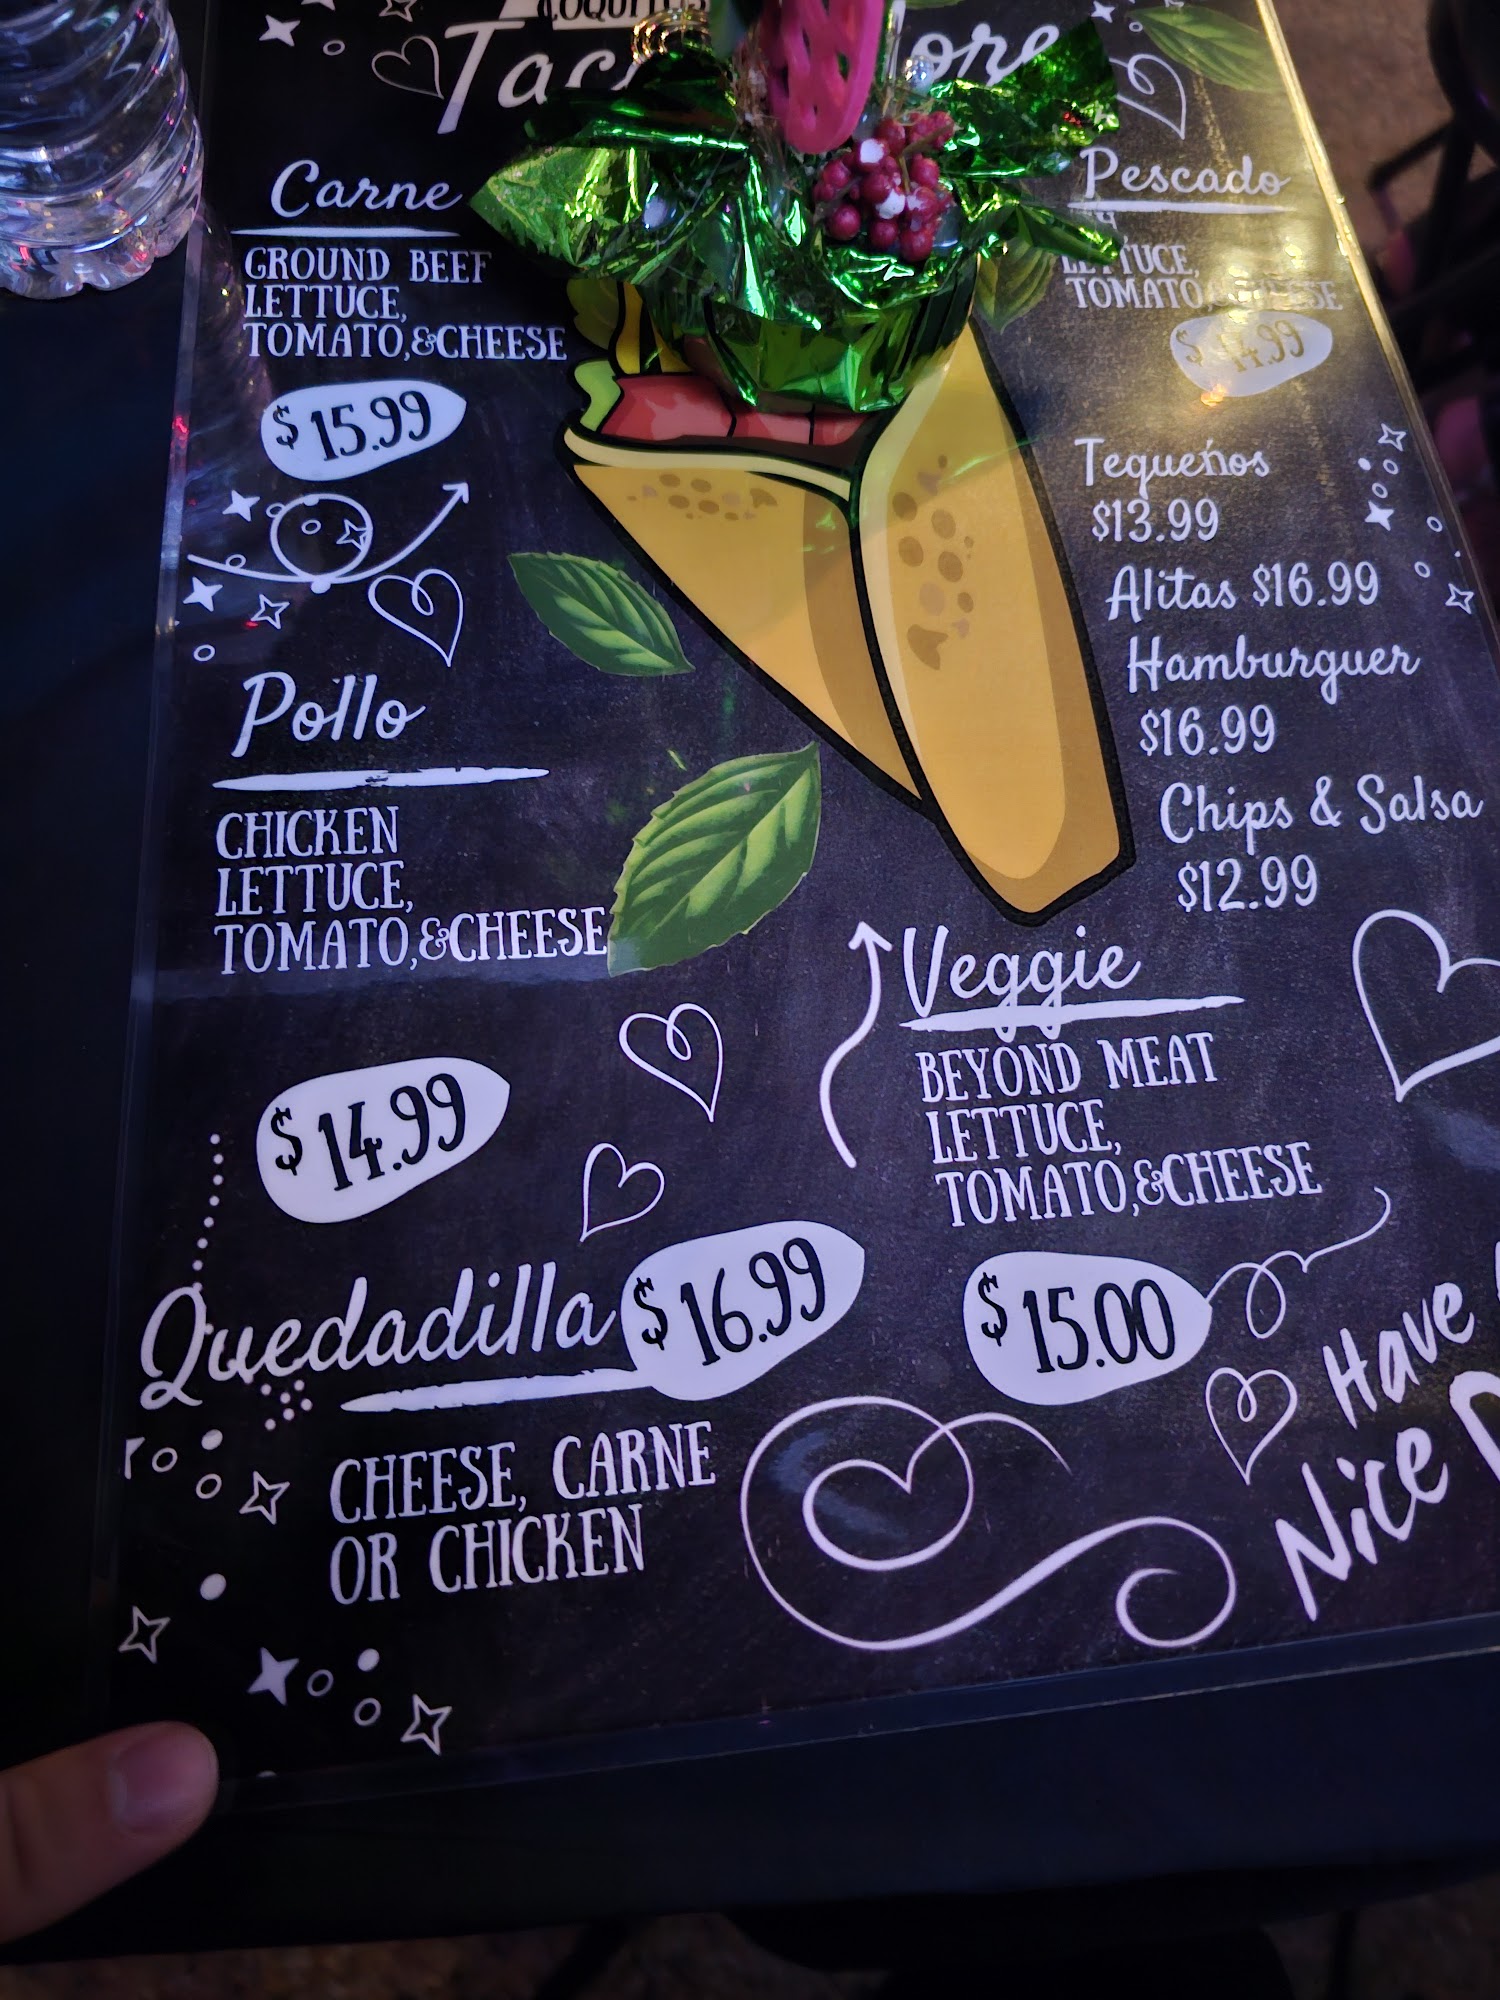 Carne
GROUND BEEF
LETTUCE,
TOMATO,&CHEESE
$ 15.99
Pollo
CHICKEN
LETTUCE,
TOMATO,&CHEESE
$ 14.99
Quedadilla $ 16.99
CHEESE, CARNE
OR CHICKEN
Pescado
LETTUCE,
TOMATO,&CHEESE
$ 14.99
Tequeños
$13.99
Alitas $16.99
Hamburguer
$16.99
Chips & Salsa
$12.99
Veggie
BEYOND MEAT
LETTUCE,
TOMATO,&CHEESE
$ 15.00
Have
Nice